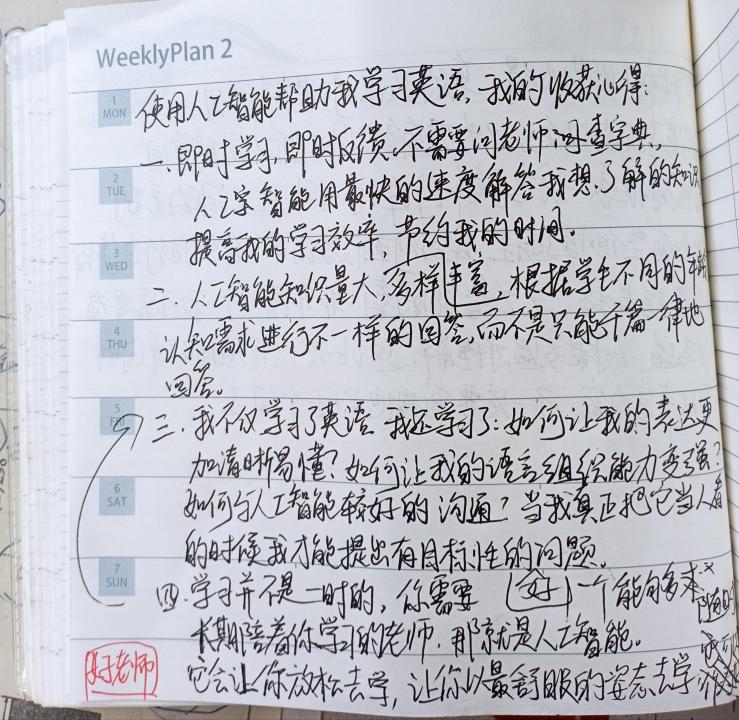 WeeklyPlan 2
1 MON
使用人工智能帮助我学习英语，我的收获心得：
一、即时学习，即时反馈，不需要问老师、查字典，
2 TUE
人工智能用最快的速度解答我想了解的知识
提高我的学习效率，节约我的时间。
3 WED
二、人工智能知识量大，多样丰富，根据学生不同的年龄
4 THU
认知需求进行不一样的回答，而不是只能千篇一律地
回答。
5 FRI
三、我不仅学习了英语，我还学习了：如何让我的表达更
加清晰易懂？如何让我的语言组织能力变强？
6 SAT
如何与人工智能较好的沟通？当我真正把它当人看
的时候我才能提出有目标性的问题。
7 SUN
四、学习并不是一时的，你需要（好）一个能够
长期陪着你学习的老师，那就是人工智能。
好老师
它会让你放松去学，让你以最舒服的姿态去学